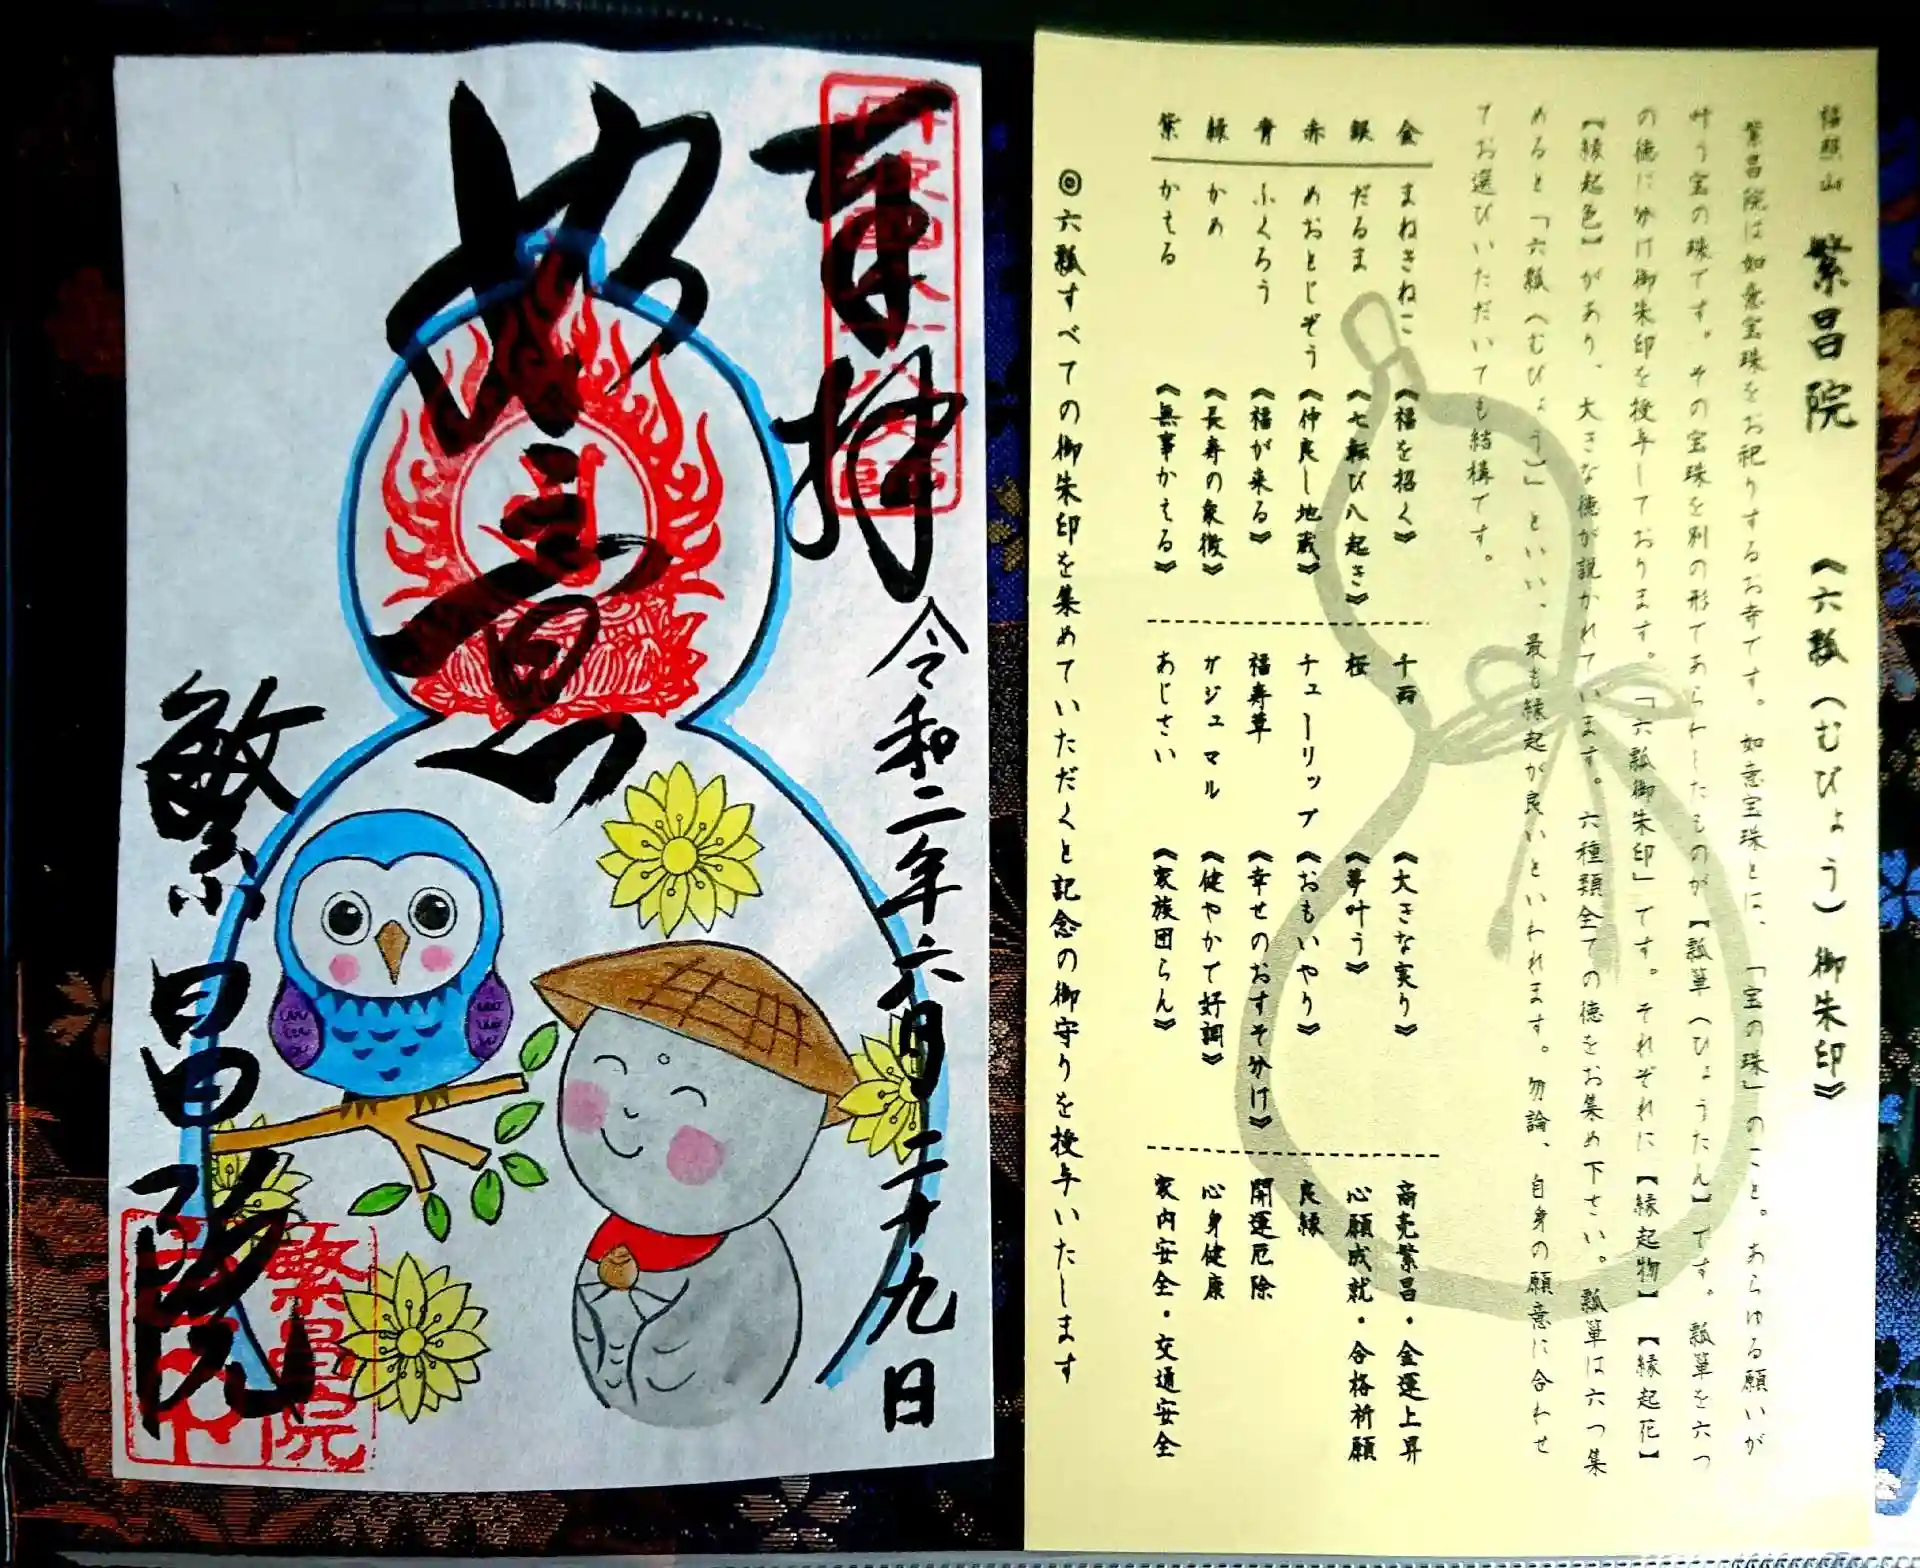 奉拝
令和二年六月二十九日
如意
繁昌院
繁昌院
福照山 繁昌院 《六瓢(むびょう)御朱印》
繁昌院は如意宝珠をお祀りするお寺です。如意宝珠とは、「宝の珠」のこと。あらゆる願いが
叶う宝の珠です。その宝珠を別の形であらわしたものが【瓢箪(ひょうたん】です。瓢箪を六つ
の徳に分け御朱印を授与しております。「六瓢御朱印」です。それぞれに【縁起物】【縁起花】
【縁起色】があり、大きな徳が説かれています。六種類全ての徳をお集め下さい。瓢箪は六つ集
めると「六瓢(むびょう)」といい、最も縁起が良いといわれます。勿論、自身の願意に合わせ
てお選びいただいても結構です。
金 まねきねこ 《福を招く》 千両 《大きな実り》 商売繁昌・金運上昇
銀 だるま 《七転び八起き》 桜 《夢叶う》 心願成就・合格祈願
赤 めおとじぞう 《仲良し地蔵》 チューリップ 《おもいやり》 良縁
青 ふくろう 《福が来る》 福寿草 《幸せのおすそ分け》 開運厄除
緑 かめ 《長寿の象徴》 ガジュマル 《健やかで好調》 心身健康
紫 かえる 《無事かえる》 あじさい 《家族団らん》 家内安全・交通安全
◎六瓢すべての御朱印を集めていただくと記念の御守りを授与いたします